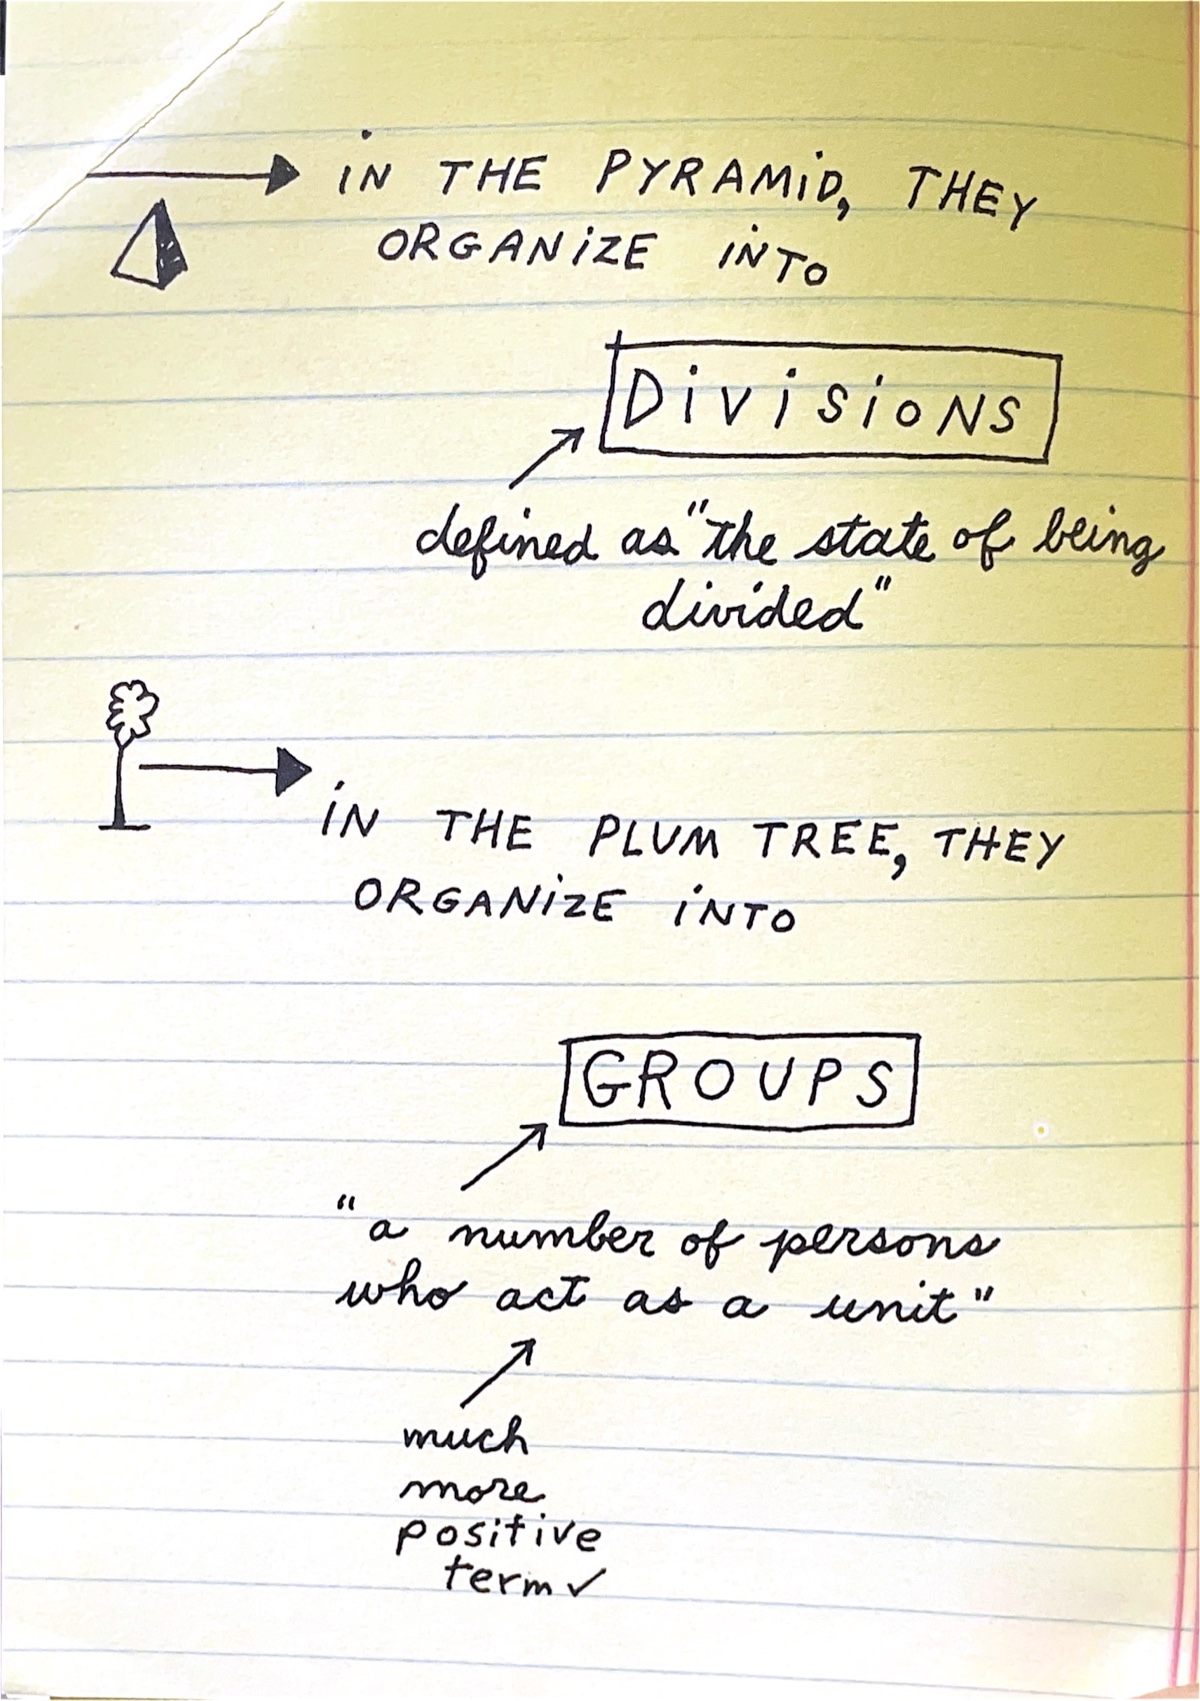 IN THE PYRAMID, THEY
ORGANIZE INTO
DIVISIONS
defined as "the state of being
divided"
IN THE PLUM TREE, THEY
ORGANIZE INTO
GROUPS
"a number of persons
who act as a unit"
much
more
positive
term ✓